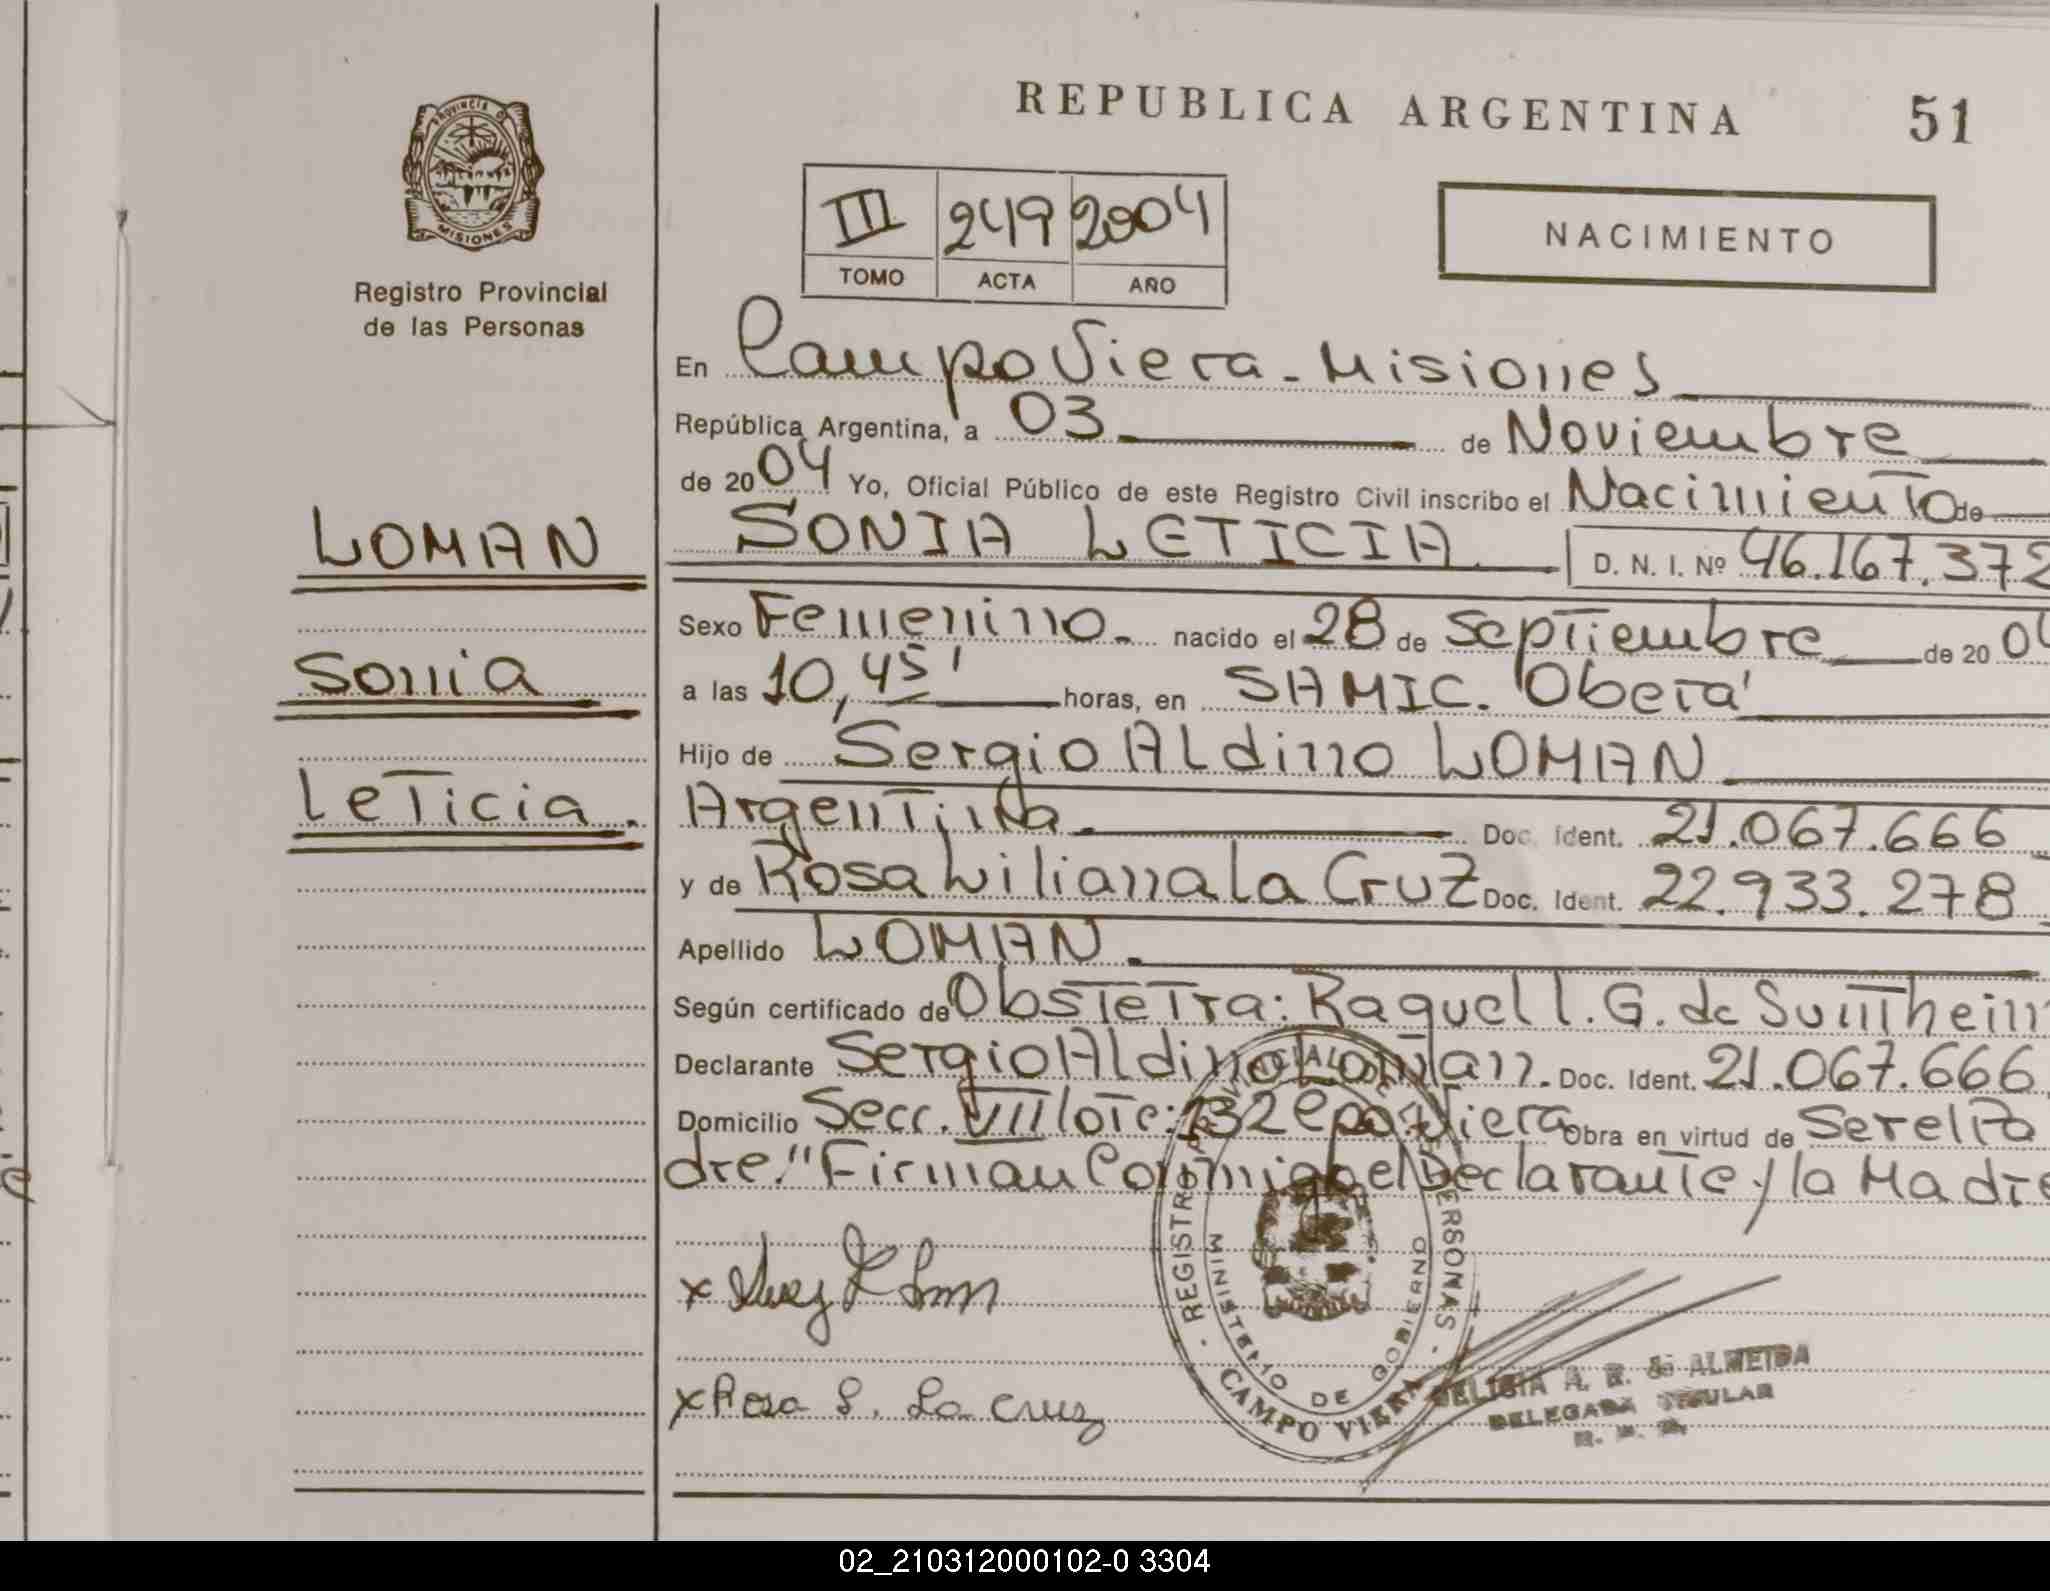 REPUBLICA ARGENTINA
51
PROVINCIA
MISIONES
Registro Provincial
de las Personas
III 249 2004
TOMO ACTA AÑO
NACIMIENTO
LOMAN
Sonia
Leticia.
En Campo Viera - Misiones
República Argentina, a 03 de Noviembre
de 2004 Yo, Oficial Público de este Registro Civil inscribo el Nacimiento de
SONIA LETICIA D. N. I. Nº 46.167.372
Sexo Femenino. nacido el 28 de Septiembre de 2004
a las 10,45' horas, en SAMIC. Oberá
Hijo de Sergio Aldino LOMAN
Argentina. Doc. Ident. 21.067.666
y de Rosa Liliana La Cruz Doc. Ident. 22.933.278
Apellido LOMAN.
Según certificado de Obstetra: Raquel l. G. de
Declarante Sergio Aldino Loman. Doc. Ident. 21.067.666
Domicilio Secc. VIII lote: 132 Cpo. Viera Obra en virtud de Ser el Pa
dre." Firman Conmigo el Declarante y la Madre
x
x Rosa L. La Cruz
REGISTRO PROVINCIAL DE LAS PERSONAS
MINISTERIO DE GOBIERNO
CAMPO VIERA
A. R. de ALMEIDA
DELEGADA TITULAR
02_210312000102-0 3304